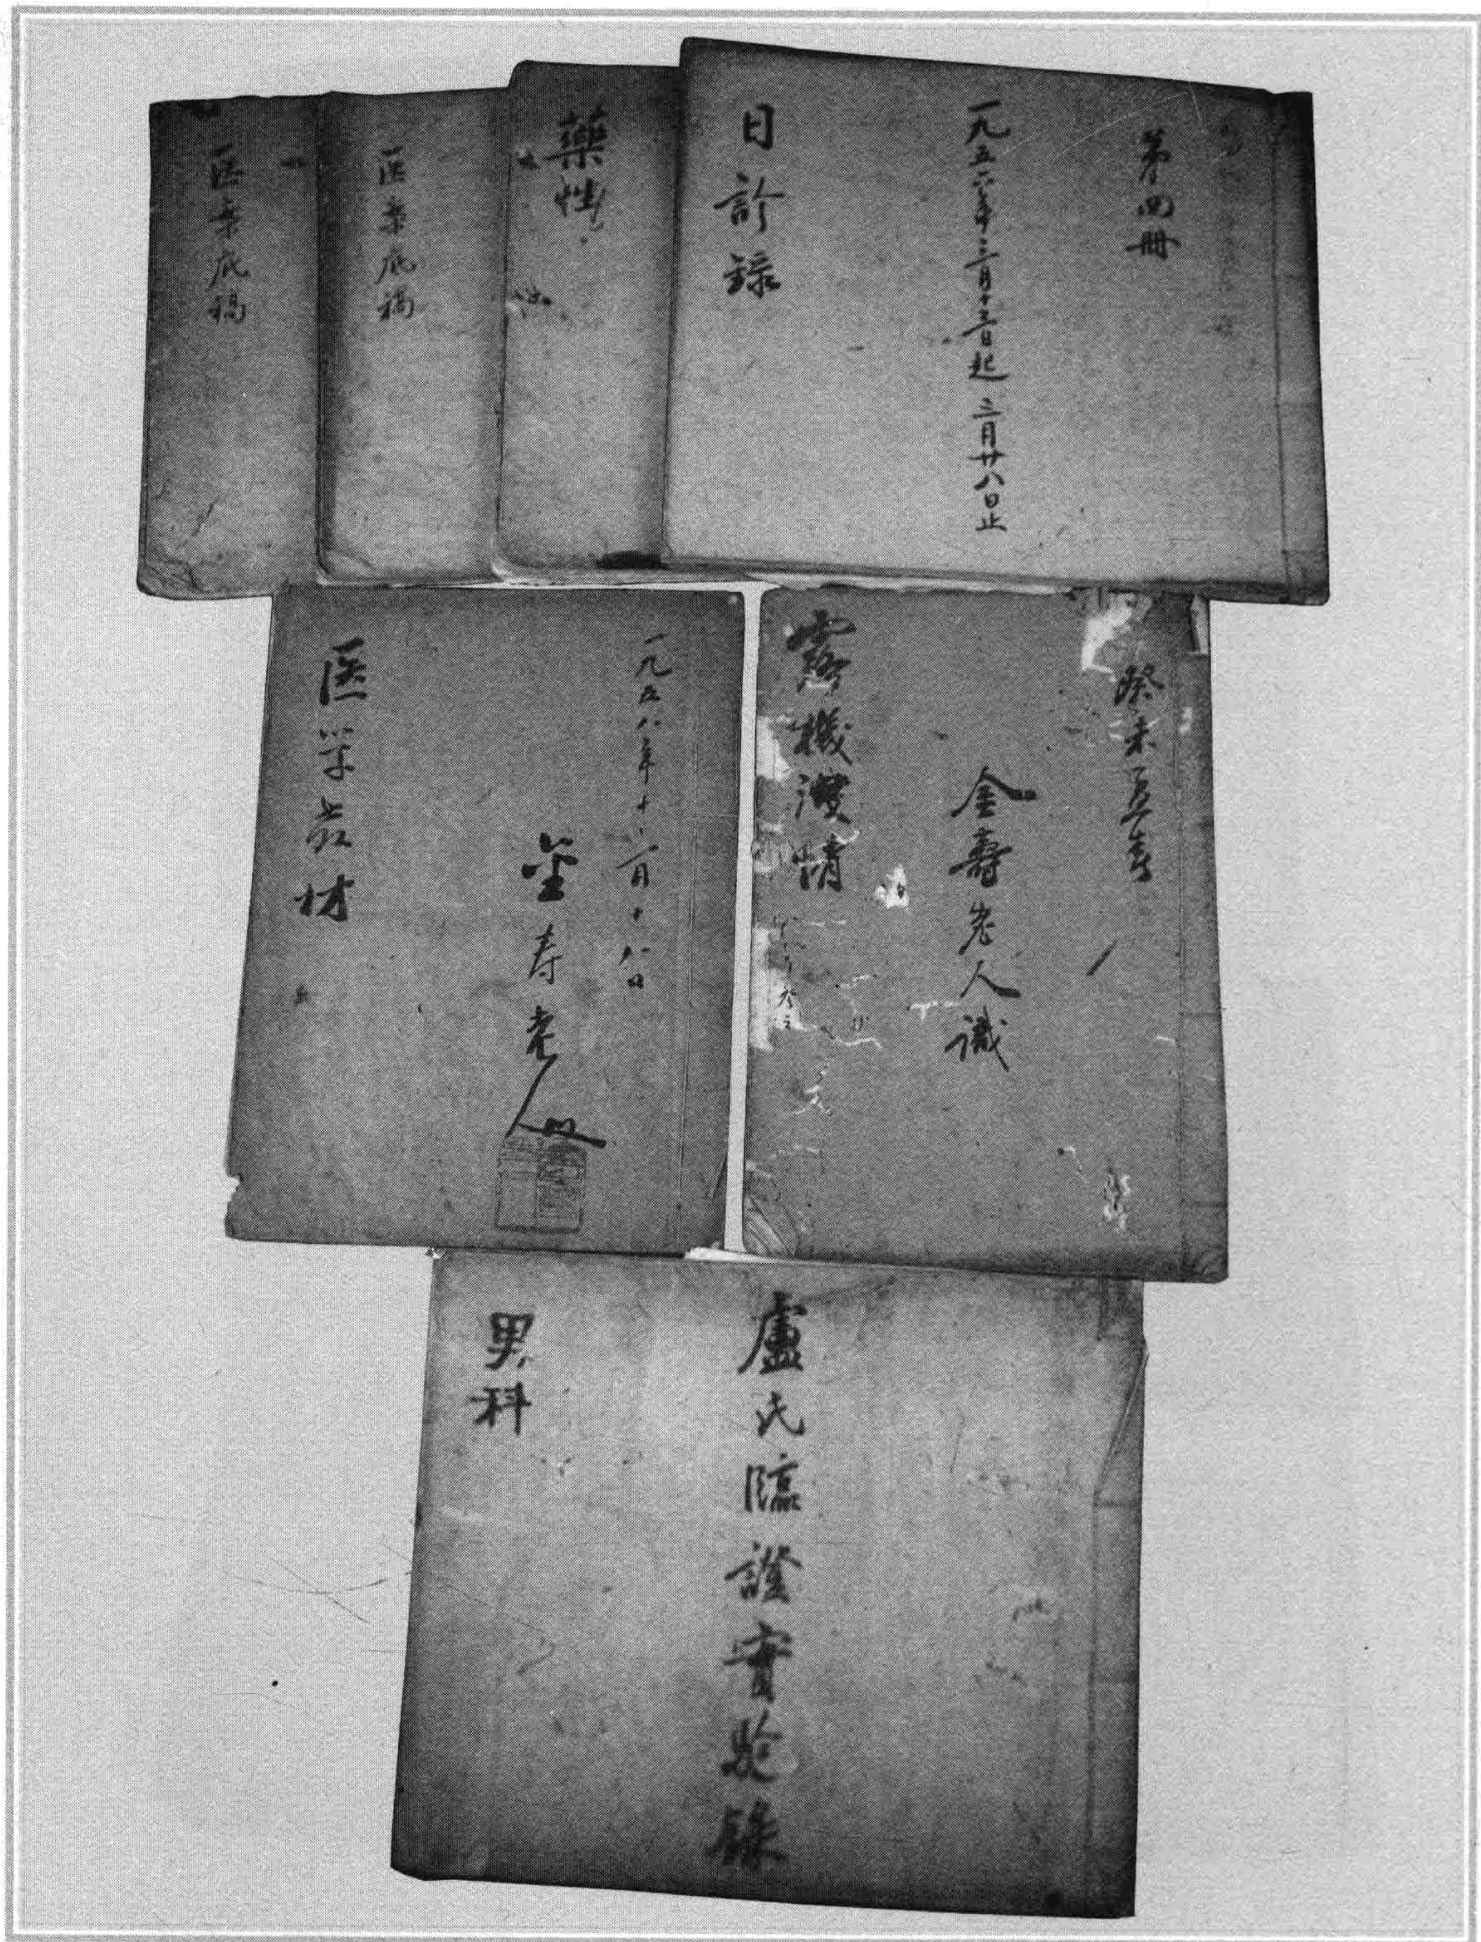 医案底稿
医案底稿
藥性
第四册
一九五六年三月十三日起 三月廿八日止
日診録
一九五八年十一月十八日
金寿老人
医学教材
癸未孟春
金壽老人識
靈機澄情
盧氏臨證實驗錄
男科